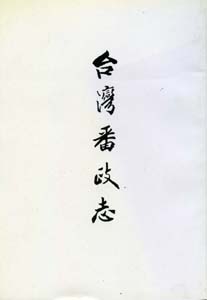 台灣番政志